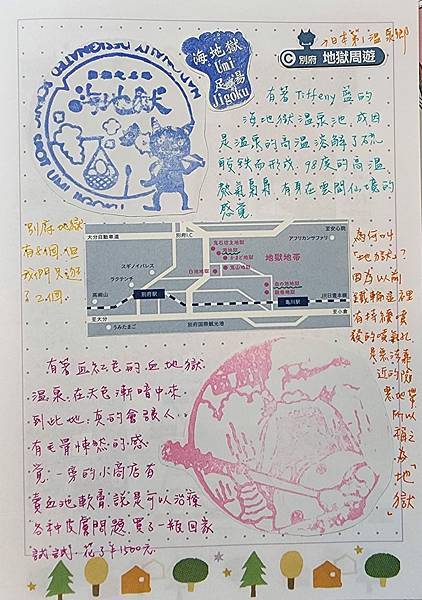 日本第1溫泉鄉
C 別府 地獄周遊
海地獄
Umi
足湯
Jigoku
海地獄
UMI JIGOKU
有著Tiffeny藍的
海地獄溫泉池，成因
是溫泉的高溫溶解了硫
酸鉄而形成，98度的高溫，
熱氣裊裊，有身在雲間仙境的
感覺
別府地獄
有8個，但
我們只逛
了2個.
大分自動車道
別府I.C
至安心院
アフリカンサファリ
鬼石坊主地獄
海地獄
かまど地獄
鬼山地獄
白池地獄
地獄地帯
血の池地獄
龍巻地獄
スギノイパレス
ラクテンチ
高崎山
別府駅
亀川駅
JR日豊本線
至大分
うみたまご
別府国際観光港
至小倉
為何叫
「地獄」?
因為以前
鐵輪這裡
有持續噴
發的噴氣孔
是無法靠
近的險
惡地帶
所以
稱之
為"地
獄"
有著血紅色的血地獄
溫泉，在天色漸暗中來
到此地，真的會張人
有毛骨悚然的感
覺，一旁的小商店有
賣血池軟膏，說是可以治療
各種皮膚問題，買了一瓶回家
試試，花了¥1500元.